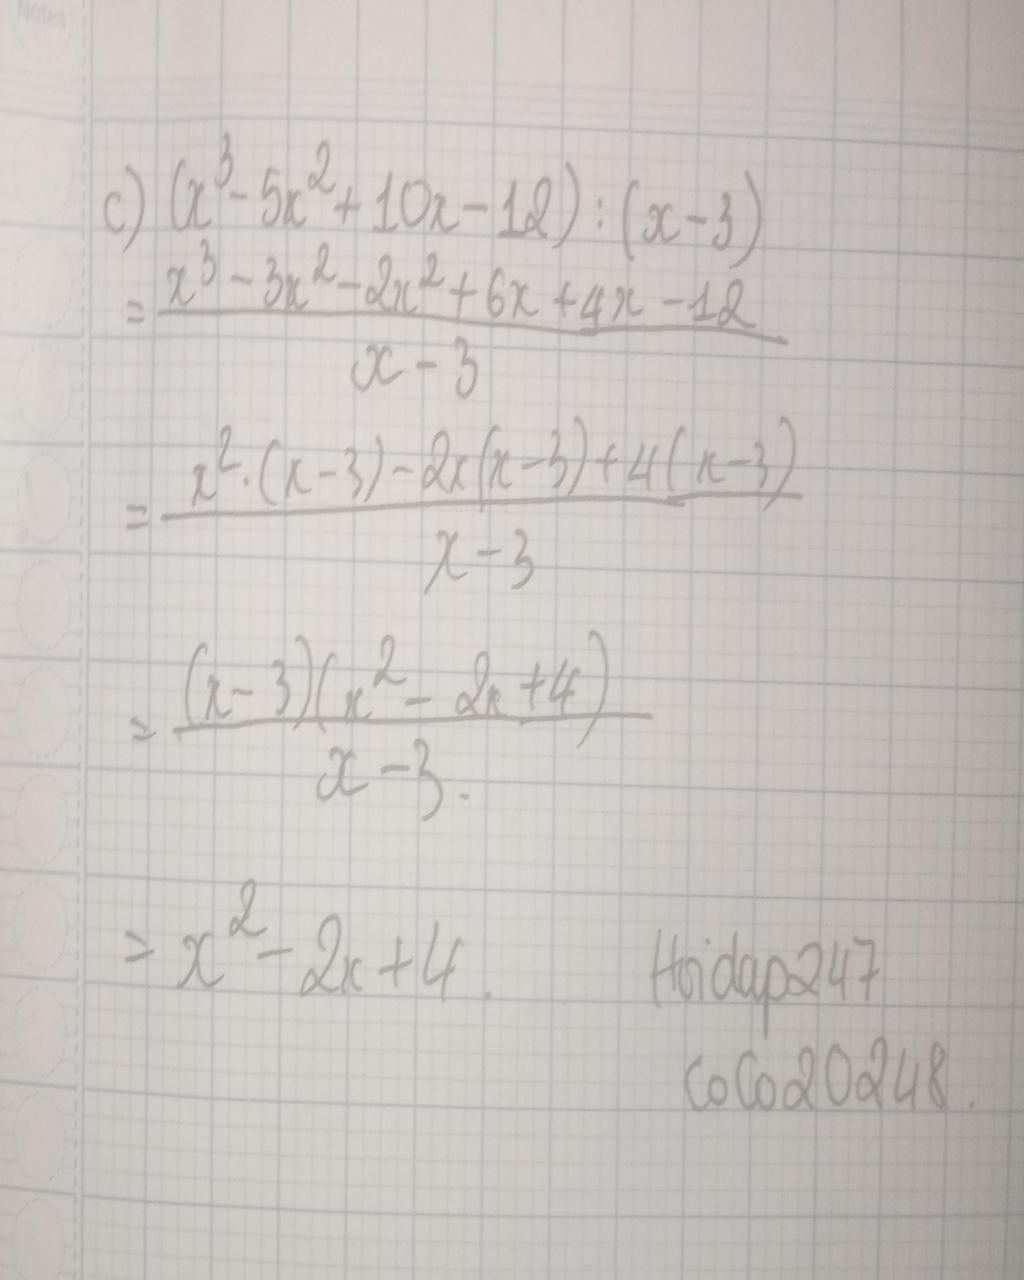 Notes
c) (x³ - 5x² + 10x - 12) : (x - 3)
= x³ - 3x² - 2x² + 6x + 4x - 12
x - 3
= x² . (x - 3) - 2x(x - 3) + 4(x - 3)
x - 3
= (x - 3)(x² - 2x + 4)
x - 3.
= x² - 2x + 4.
Hoidap247
CoCo20248.